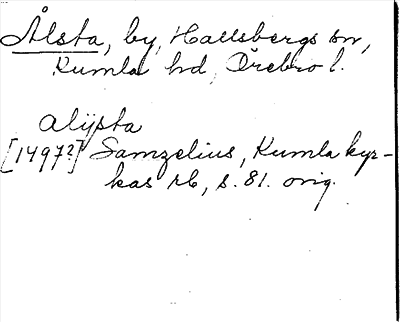 Ålsta, by, Hallsbergs sn,
Kumla hd, Örebro l.
Alijsta
[1497?] Samzelius, Kumla kyr-
kas rb, s. 81. orig.